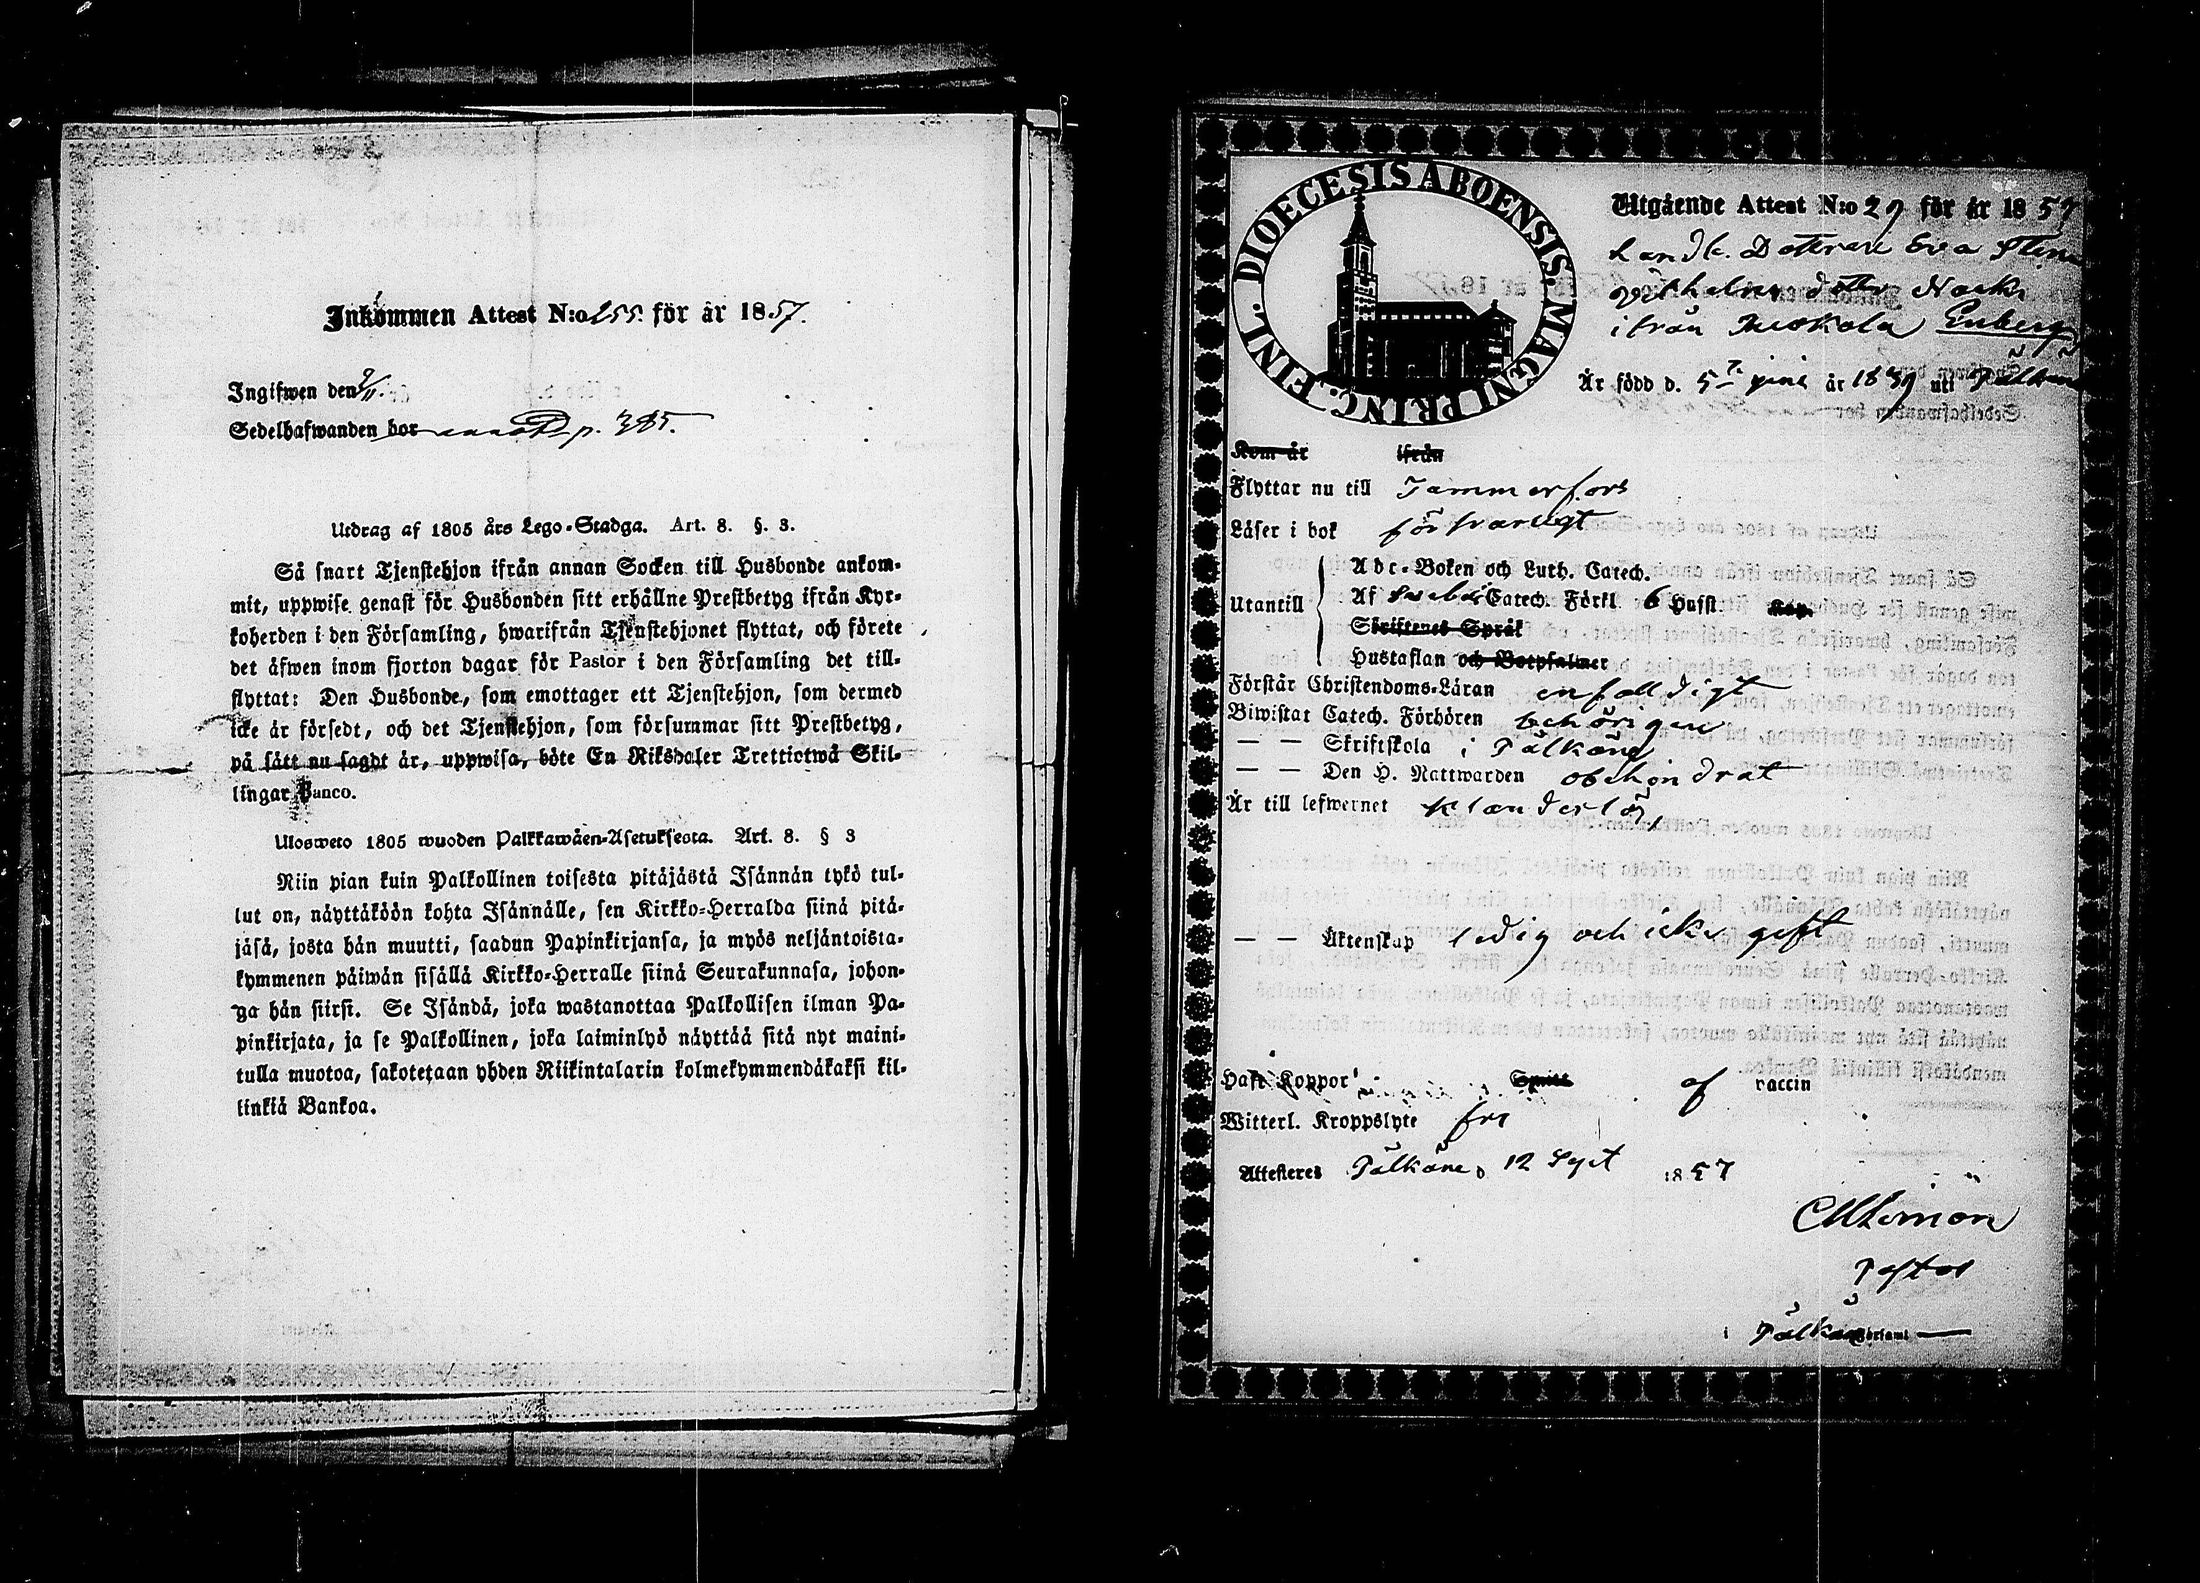 Inkommen Attest N:o 255. för år 1857.
Ingifwen den 9/11.
Sedelhafwanden bor annot. p. 385.
Utdrag af 1805 års Lego-Stadga. Art. 8. §. 3.
Så snart Tjenstehjon ifrån annan Socken till Husbonde ankom-
mit, uppwise genast för Husbonden sitt erhållne Prestbetyg ifrån Kyr-
koherden i den Församling, hwarifrån Tjenstehjonet flyttat, och förete
det äfwen inom fjorton dagar för Pastor i den Församling det till-
flyttat: Den Husbonde, som emottager ett Tjenstehjon, som dermed
icke är försedt, och det Tjenstehjon, som försummar sitt Prestbetyg,
på sätt nu sagdt är, uppwisa, böte En Riksdaler Trettiotwå Skil-
lingar Banco.
Ulosweto 1805 wuoden Palkkawäen-Asetuksesta. Art. 8. § 3
Niin pian kuin Palkollinen toisesta pitäjästä Isännän tykö tul-
lut on, näyttäköön kohta Isännälle, sen Kirkko-Herralda siinä pitä-
jäsä, josta hän muutti, saadun Papinkirjansa, ja myös neljäntoista-
kymmenen päiwän sisällä Kirkko-Herralle siinä Seurakunnasa, johon-
ga hän siirsi. Se Isändä, joka wastanottaa Palkollisen ilman Pa-
pinkirjata, ja se Palkollinen, joka laiminlyö näyttää sitä nyt maini-
tulla muotoa, sakotetaan yhden Riikintalarin kolmekymmendäkaksi kil-
linkiä Bankoa.
DIOECESIS ABOENSIS MAGNI PRINC. FINL.
Utgående Attest N:o 29 för år 1857
Landb. Dottren Eva Stina
Vilhelms dotter Nocka
ifrån Enberg
Är född d. 5te juni år 1839 uti Pälkäne
Kom år ifrån
Flyttar nu till Tammerfors
Läser i bok försvarligt
Utantill
Abc-Boken och Luth. Catech.
Af Svebel. Catech. Förkl. 6 Hufst. Kap.
Skriftenes Språk
Hustaflan och Botpsalmer
Förstår Christendoms-Läran enfaldigt
Biwistat Catech. Förhören behörigen
— — Skriftskola i Pälkäne
— — Den H. Nattwarden obehindrat
Är till lefwernet klanderlös
— — Äktenskap ledig och icke gift
Haft Koppor Smitt af vaccin
Witterl. Kroppslyte fri
Attesteres Pälkäne d 12 Sept 1857
Pastor
i Pälkäne Församl.